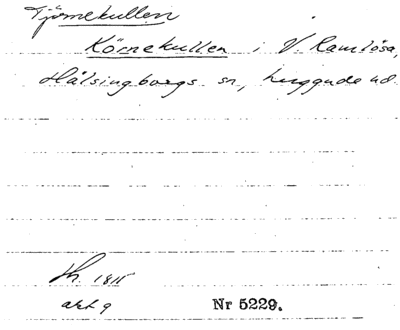 Tjörnekullen
Körnekullen i V. Ramlösa,
Hälsingborgs sn, Luggude hd.
Sk. 1815
akt 9 Nr 5229.